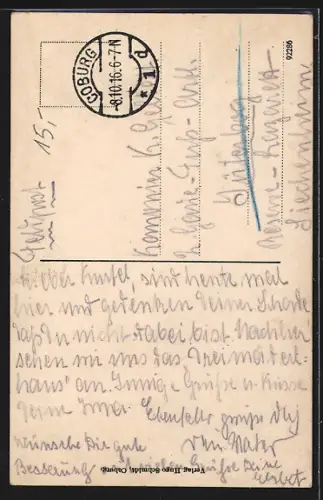 COBURG
8.10.16.6-7N
* 1 d
92286
Feldpost
15,-
Kanonier K.
2. Garde-Fuß-Artl.
Jüterbog
Reserve-Lazarett
Lieber Kurtel, sind heute mal
hier und gedenken Deiner. Schade
daß Du nicht dabei bist. Nachher
sehen wir uns das "Dreimäderl-
haus" an. Innige Grüße u. Küsse
Deine Irma. Ebenfalls grüßt Dich
wünsche Dir gute Dein Vater
Besserung Grüße Deine
Verlag Hugo Schmidt, Coburg.